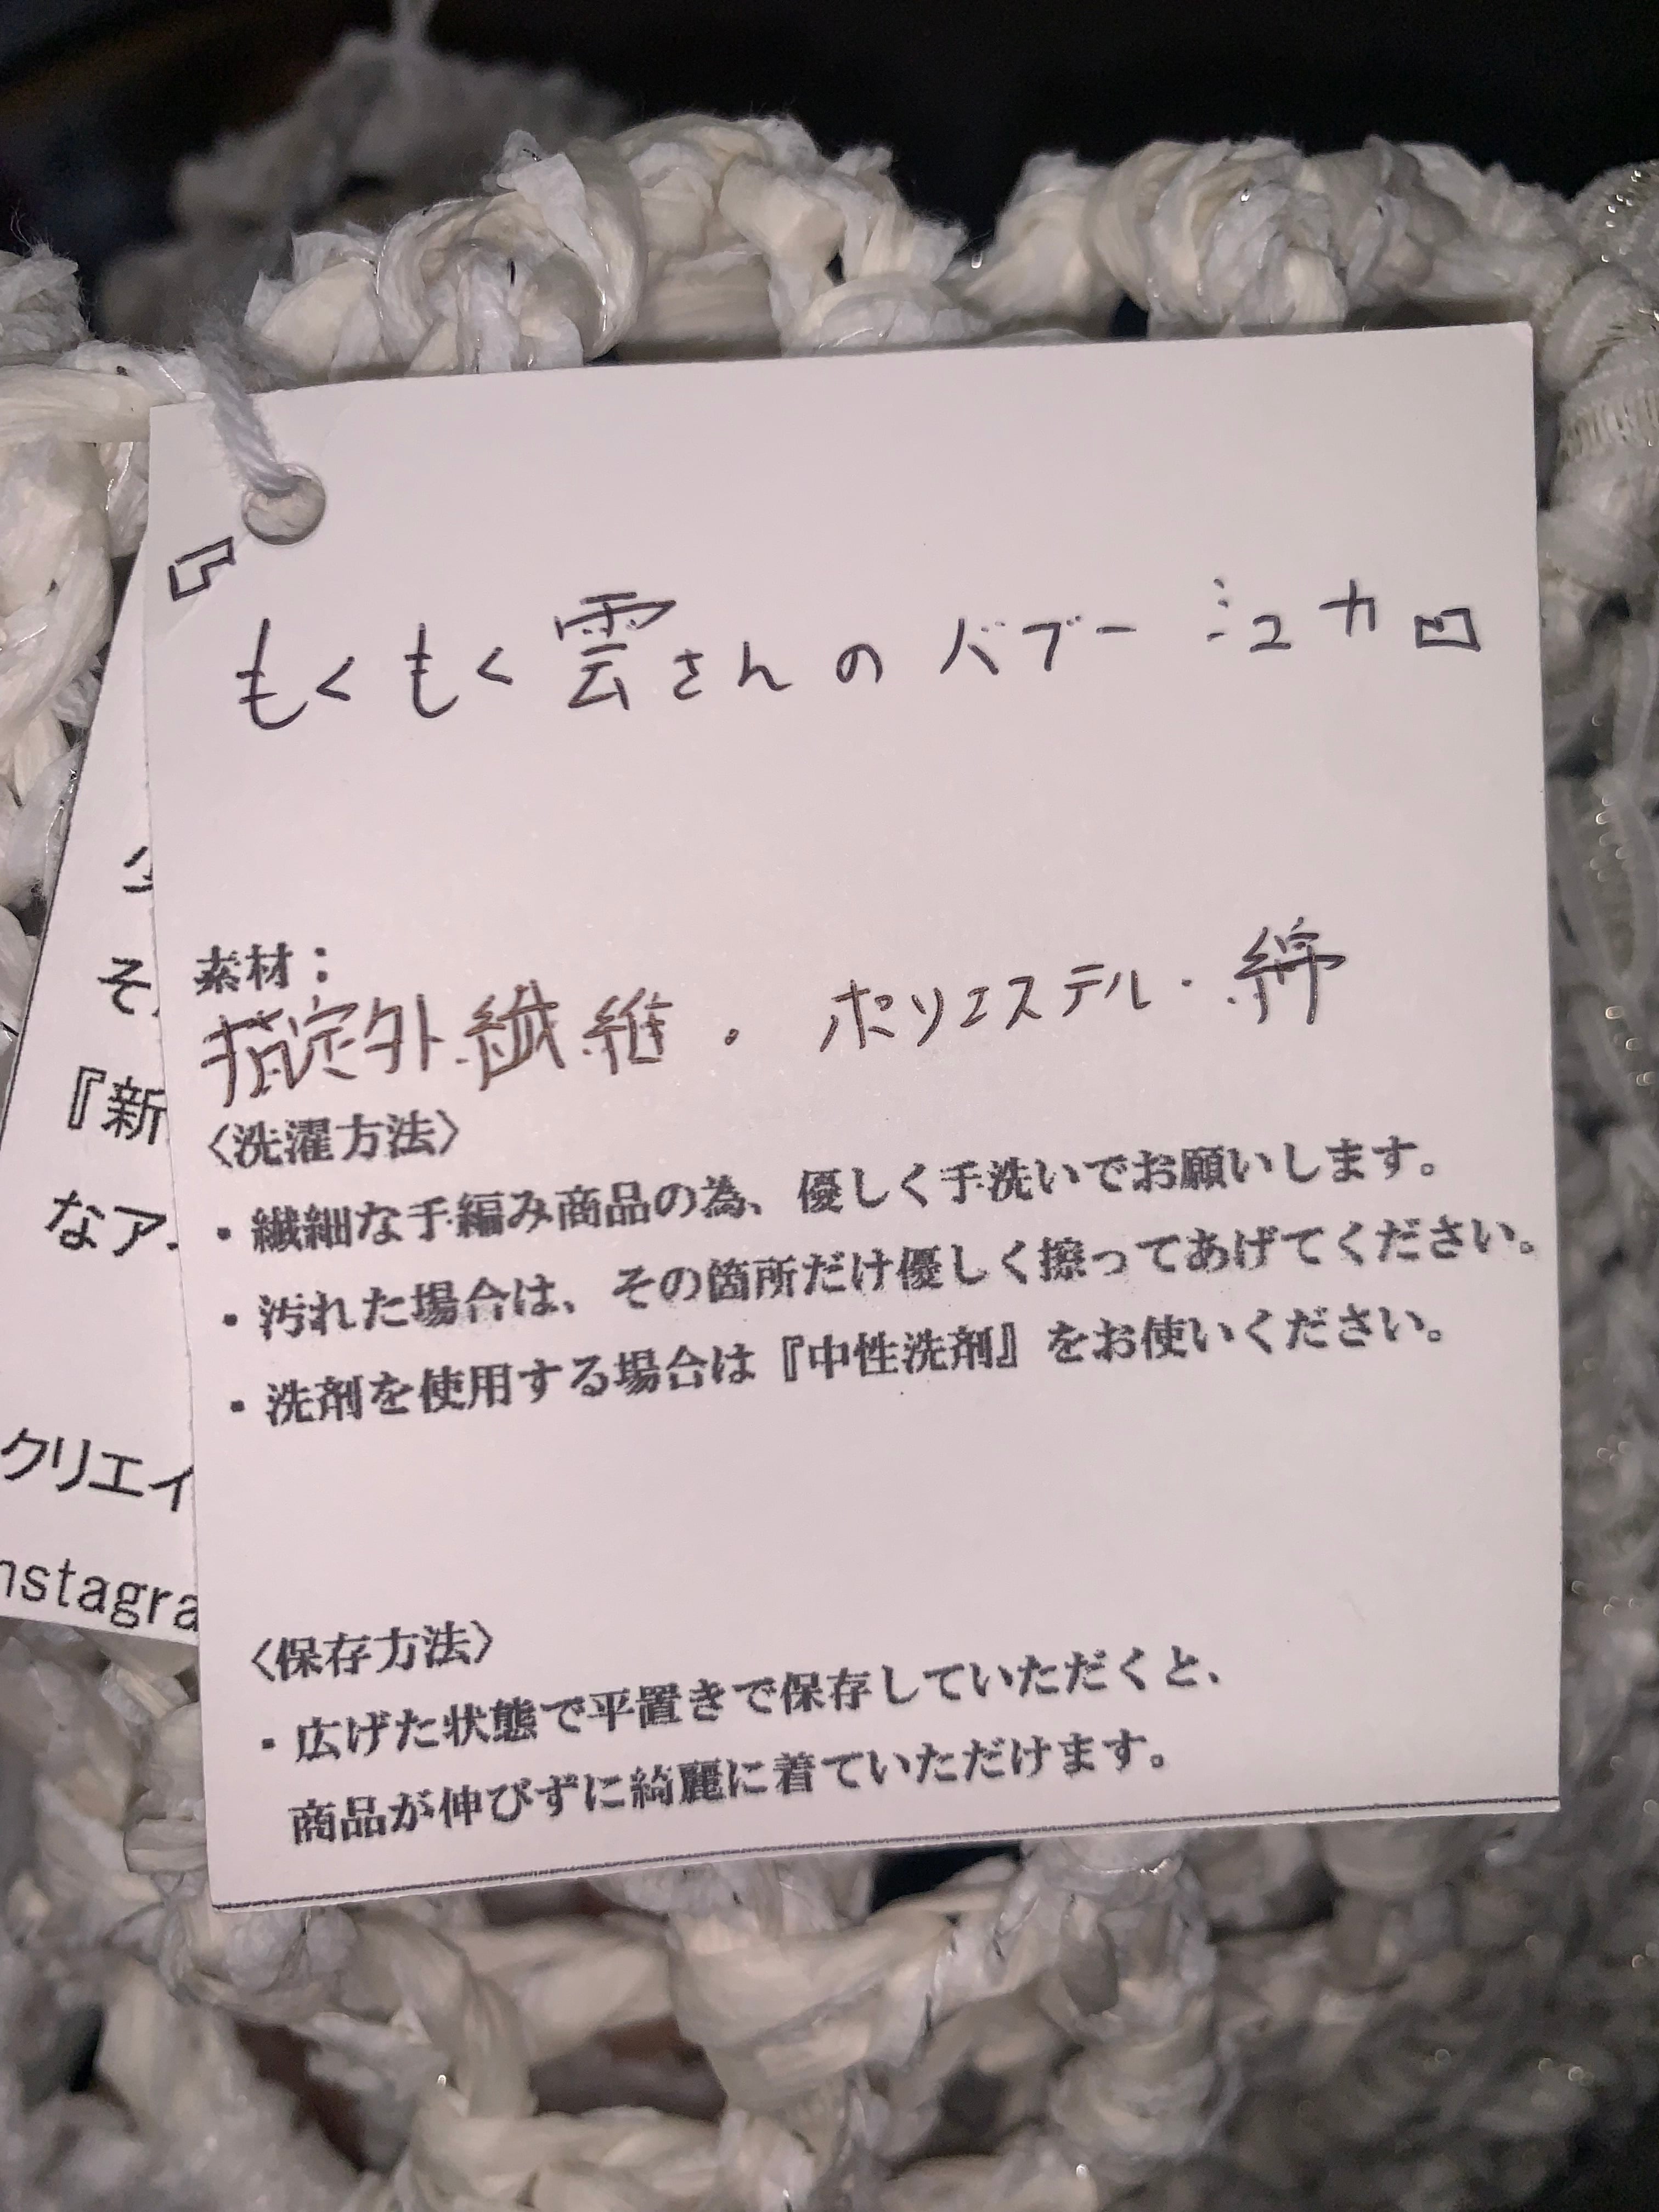 『もくもく雲さんのバブーシュカ』
素材：
指定外繊維. ポリエステル・綿
〈洗濯方法〉
・繊細な手編み商品の為、優しく手洗いでお願いします。
・汚れた場合は、その箇所だけ優しく擦ってあげてください。
・洗剤を使用する場合は『中性洗剤』をお使いください。
〈保存方法〉
・広げた状態で平置きで保存していただくと、
商品が伸びずに綺麗に着ていただけます。
そ
『新
なア
クリエイ
nstagra